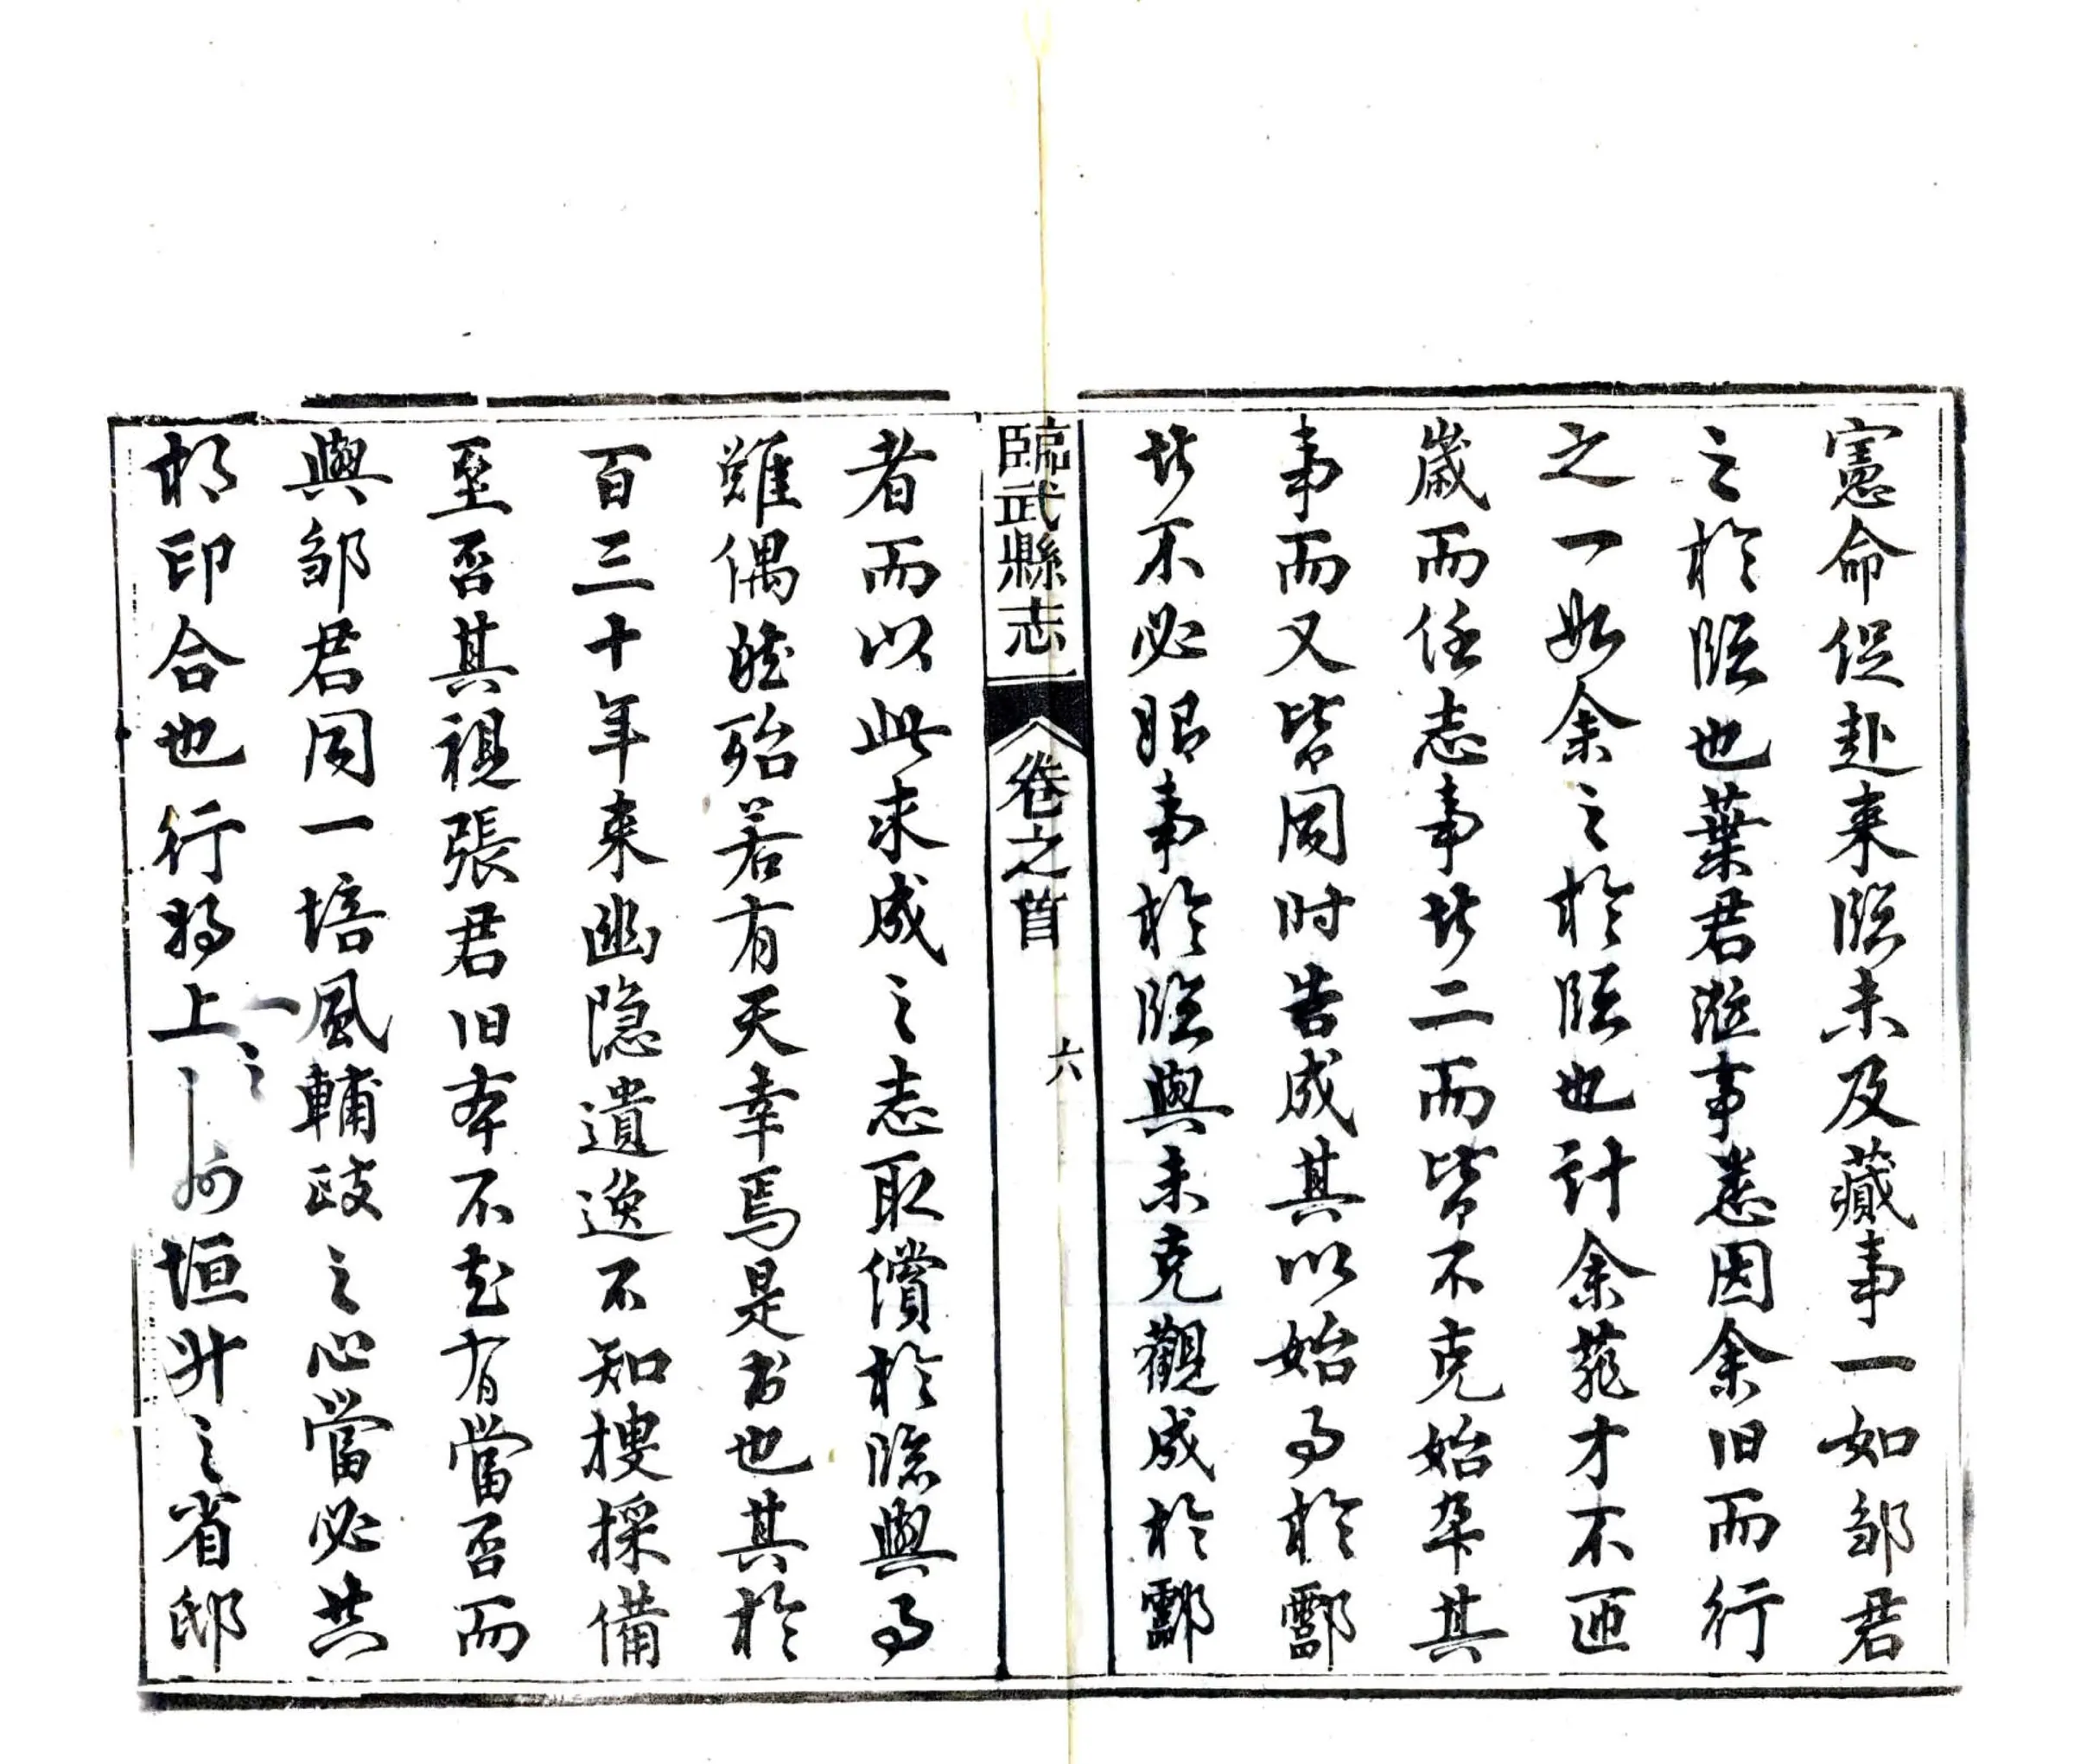 憲命促赴来臨未及蕆事一如邹君
之於臨也葉君涖事悉因余旧而行
之一如余之於臨也計余菲才不匝
歲而任志事者二而皆不克始卒其
事而又皆同时告成其以始事於酃
者不必眼事於臨與未克觀成於酃
臨武縣志
卷之首
六
者而以此求成之志取償於臨與事
雖偶然殆若有天幸焉是书也其於
百三十年来幽隐遺逸不知搜採備
至否其視張君旧本不知有當否而
與邹君同一培風輔政之心當必共
相印合也行将上
垣升之省邸